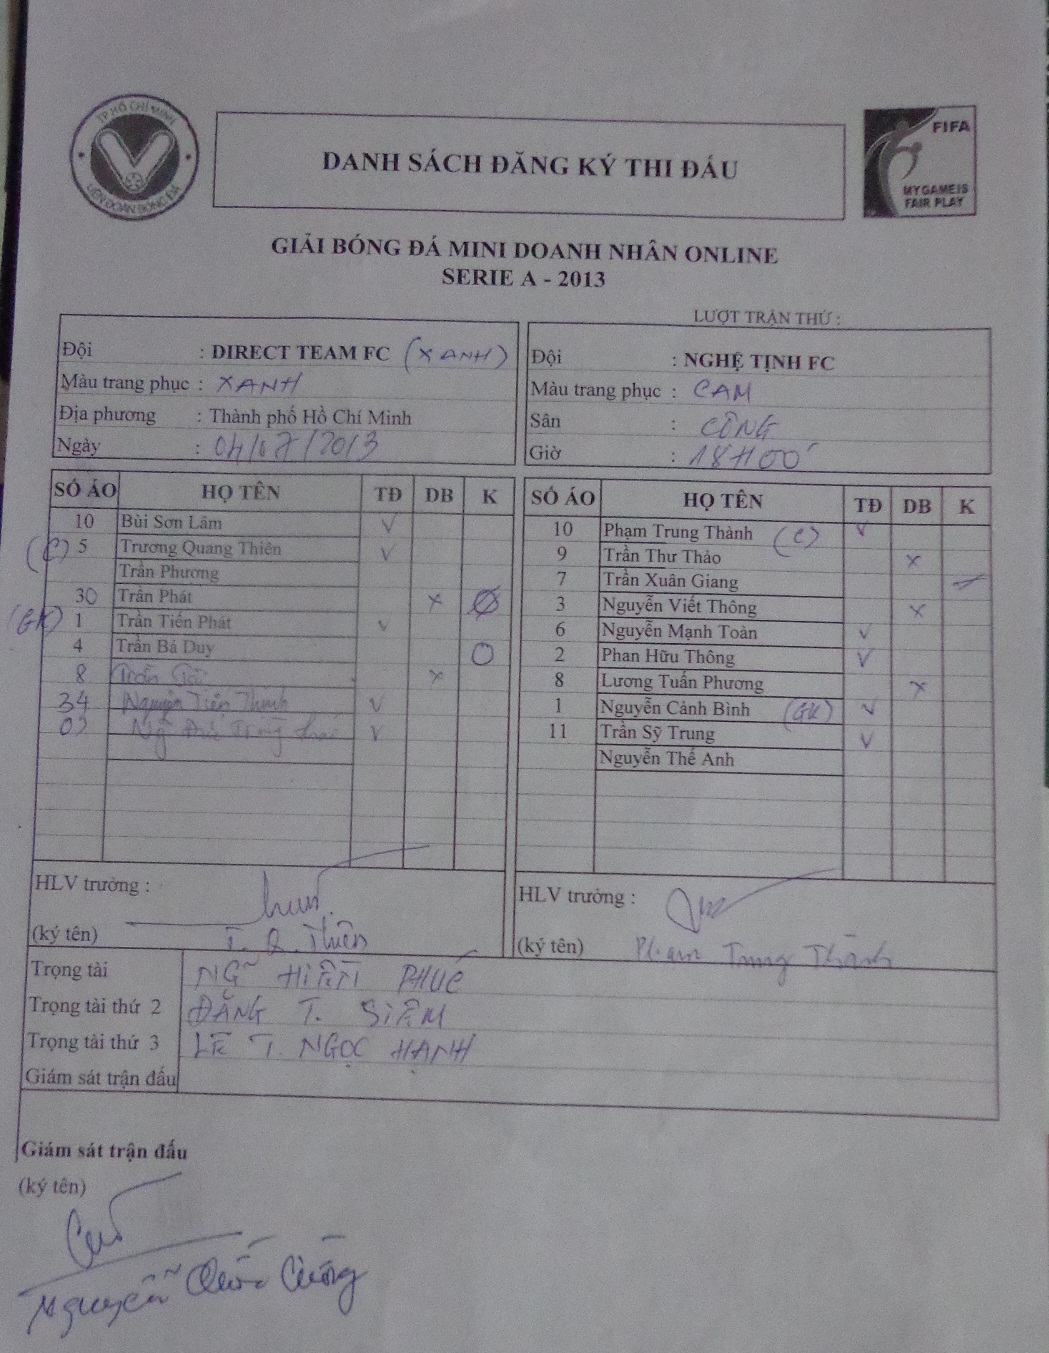 TP HỒ CHÍ MINH
LIÊN ĐOÀN BÓNG ĐÁ
DANH SÁCH ĐĂNG KÝ THI ĐẤU
FIFA
MY GAME IS
FAIR PLAY
GIẢI BÓNG ĐÁ MINI DOANH NHÂN ONLINE
SERIE A - 2013
LƯỢT TRẬN THỨ :
Đội : DIRECT TEAM FC (XANH)
Màu trang phục : XANH
Địa phương : Thành phố Hồ Chí Minh
Ngày : 04/07/2013
Đội : NGHỆ TỊNH FC
Màu trang phục : CAM
Sân :
Giờ : 18H00'
SỐ ÁO HỌ TÊN TĐ DB K
10 Bùi Sơn Lâm V
(C) 5 Trương Quang Thiên V
Trần Phương
30 Trần Phát x
(GK) 1 Trần Tiến Phát V
4 Trần Bá Duy O
8 Trần x
34 Nguyễn Tiến Thịnh V
07 V
SỐ ÁO HỌ TÊN TĐ DB K
10 Phạm Trung Thành (C) V
9 Trần Thư Thảo x
7 Trần Xuân Giang
3 Nguyễn Viết Thông x
6 Nguyễn Mạnh Toàn V
2 Phan Hữu Thông V
8 Lương Tuấn Phương x
1 Nguyễn Cảnh Bình (GK) V
11 Trần Sỹ Trung V
Nguyễn Thế Anh
HLV trưởng :
(ký tên) T. Q. Thiên
HLV trưởng :
(ký tên) Phạm Trung Thành
Trọng tài HIỀN
Trọng tài thứ 2 ĐẶNG T. SIÊM
Trọng tài thứ 3 LÊ T. NGỌC HẠNH
Giám sát trận đấu
Giám sát trận đấu
(ký tên)
Nguyễn Quốc Cường